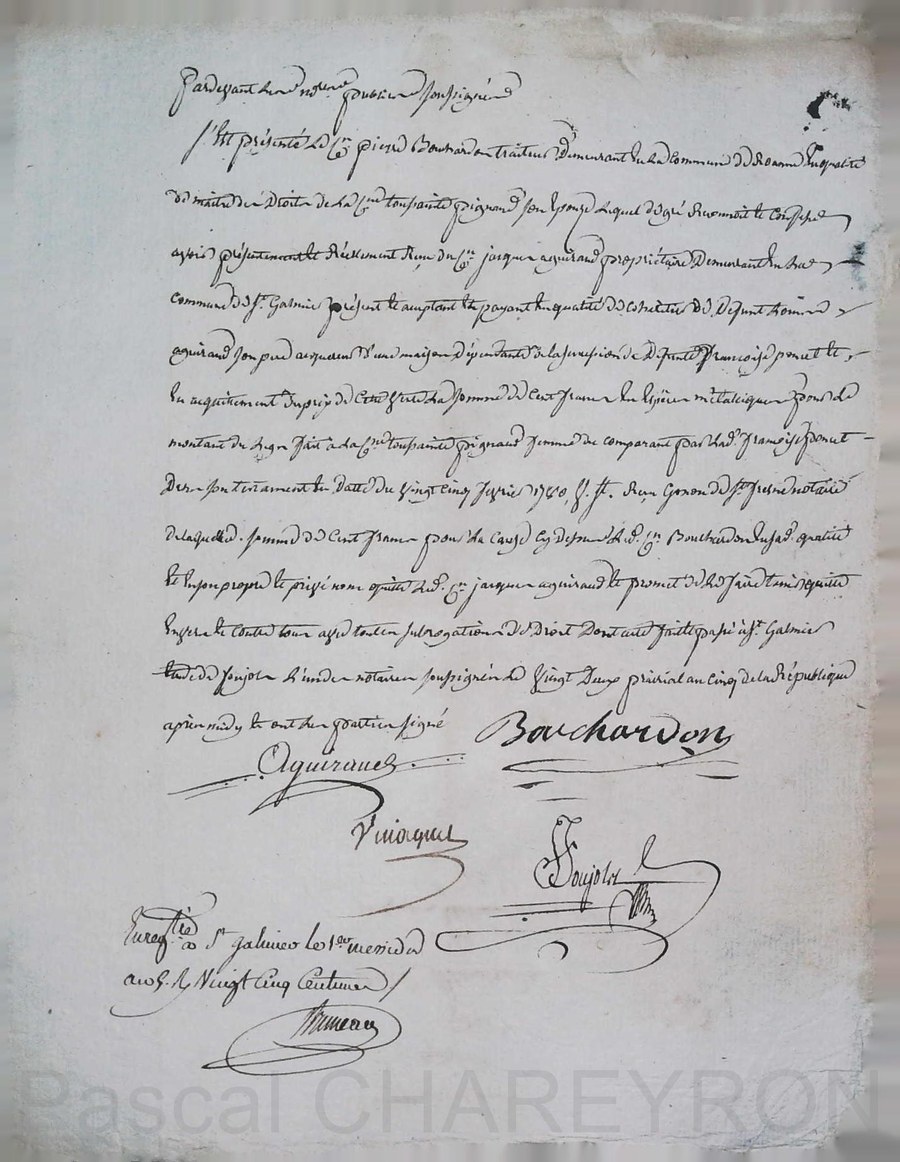 Pardevant les nores publics soussignés
S'est présenté le Cen pierre Bouchardon traiteur demeurant en la commune de Roanne en qualité
de maitre des Droits de la Cne toussainte pignaud son épouse lequel de gré reconnoit et confesse
avoir présentement et réellement reçu du Cen jacques aguiraud propriétaire Demeurant en la
commune de St. Galmier présent et acceptant et payant en qualité de cohéritier de Defunt
aguiraud son pere acquereur d'une maison dépendante de la succession de Defunte françoise poncet et
en acquittement du prix de cette vente la somme de Cent francs en espèces métalliques pour le
montant du legs fait à la Cne toussainte pignaud femme du comparant par lad. françoise poncet
Dans son testament en datte du vingt cinq 1780, reçu notaire
de laquelle d. somme de Cent francs pour la cause cy dessus led. Cen Bouchardon en sad. qualité
et en son propre et privé nom quitte led. Cen jacques aguiraud et promet de le faire tenir quitte
envers et contre tous avec toutes subrogations de Droit Dont acte fait et passé à St. Galmier
etude de Soujols l'un des notaires soussignés le vingt Deux prairial an cinq de la République
après midy et ont les parties signé
Bouchardon
Aguiraud
Soujols
Enregtré à St galmier le 1er messidor
an 5. Vingt Cinq Centimes